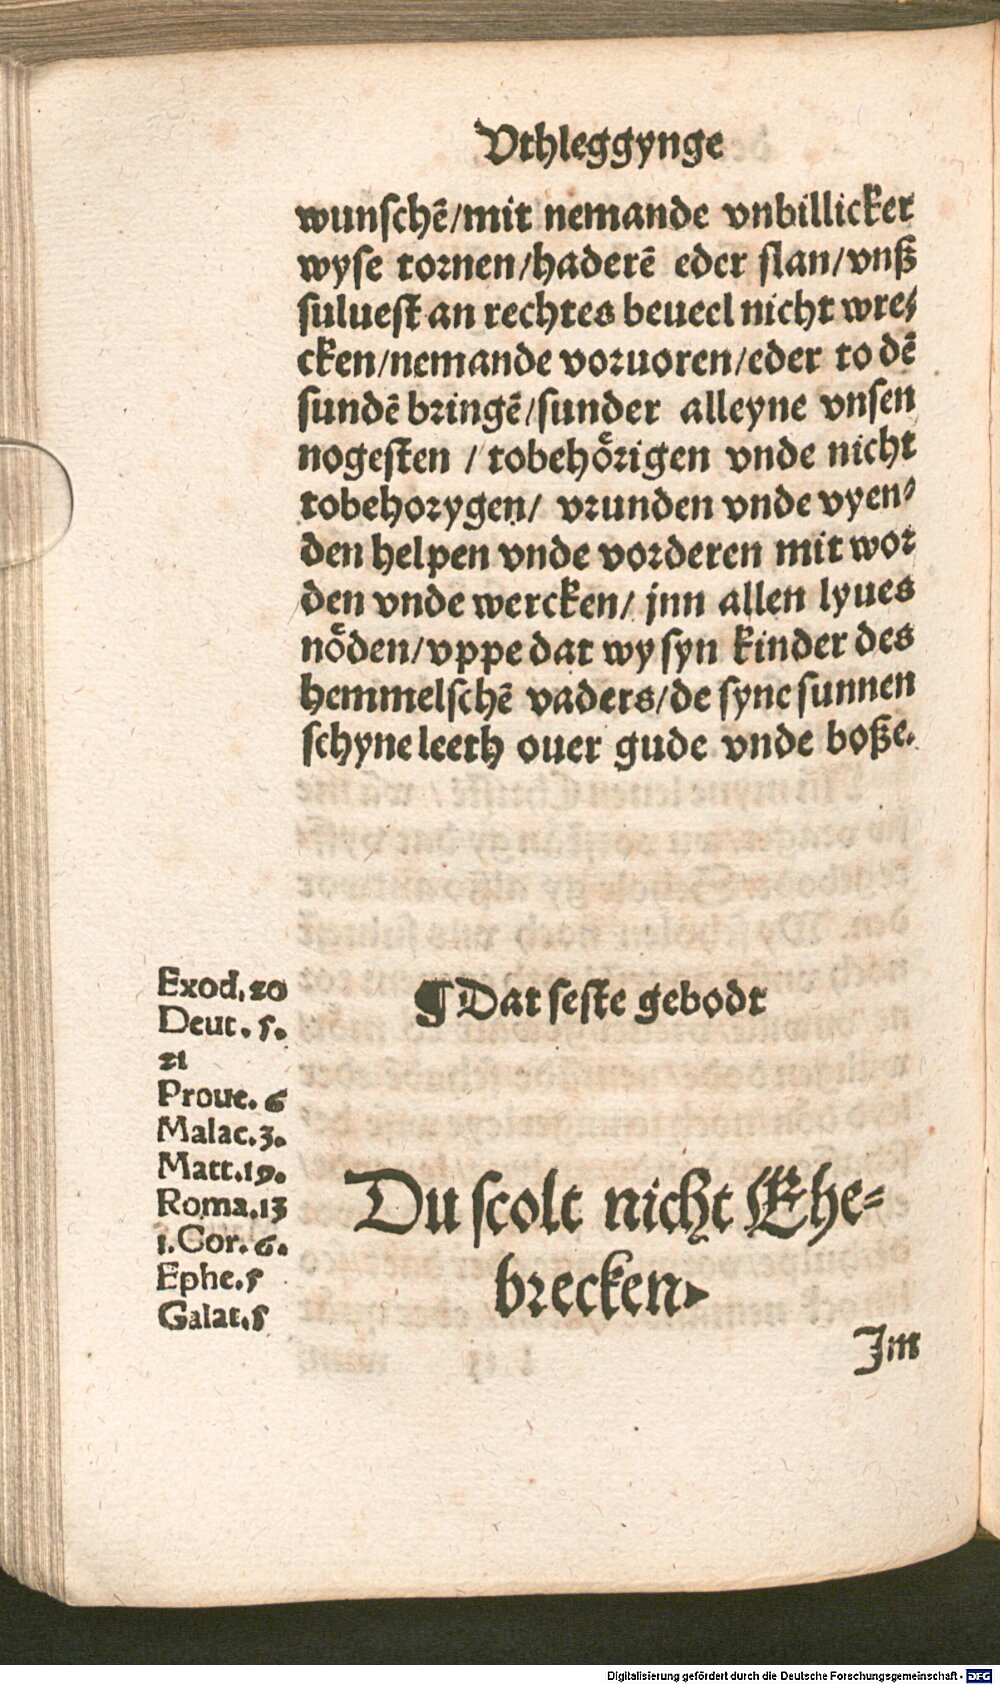 Vthleggynge
wunſchē/mit nemande vnbillicker
wyſe tornen/haderē eder ſlan/vnß
ſulueſt an rechtes beueel nicht wre⸗
cken/nemande voruoren/eder to dē
ſundē bringē/ſunder alleyne vnſen
nogeſten / tobehoͤrigen vnde nicht
tobehorygen/ vrunden vnde vyen⸗
den helpen vnde vorderen mit wor
den vnde wercken/ jnn allen lyues
noͤden/vppe dat wy ſyn kinder des
hemmelſchē vaders/de ſyne ſunnen
ſchyne leeth ouer gude vnde boße.
Exod. 20
Deut. 5.
21
Proue. 6
Malac. 3.
Matt. 19.
Roma. 13
1. Cor. 6.
Ephe. 5
Galat. 5
¶ Dat ſeſte gebodt
Du ſcolt nicht Ehe⸗
brecken.
Jm
Digitalisierung gefördert durch die Deutsche Forschungsgemeinschaft - DFG